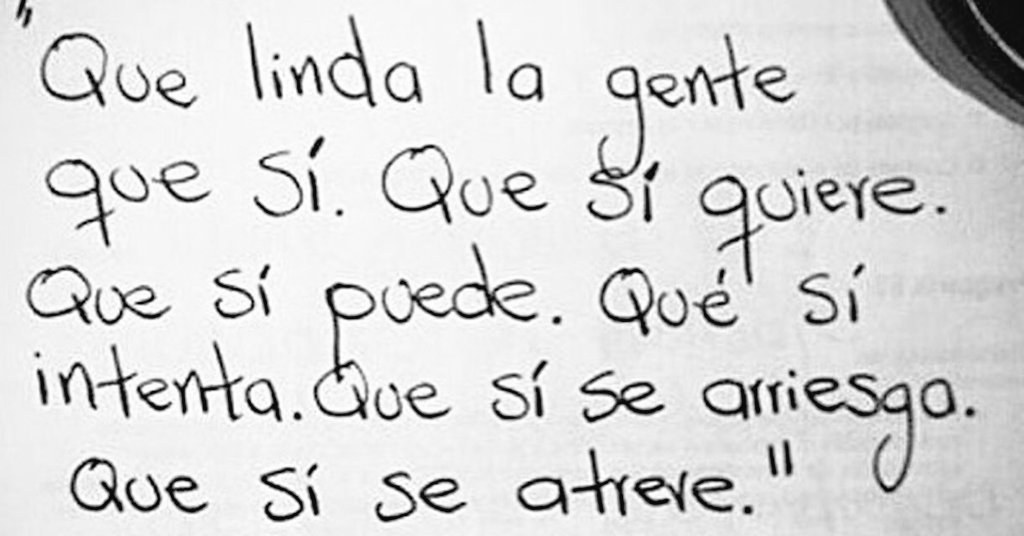 "Que linda la gente
que sí. Que sí quiere.
Que sí puede. Qué sí
intenta. Que sí se arriesga.
Que sí se atreve."